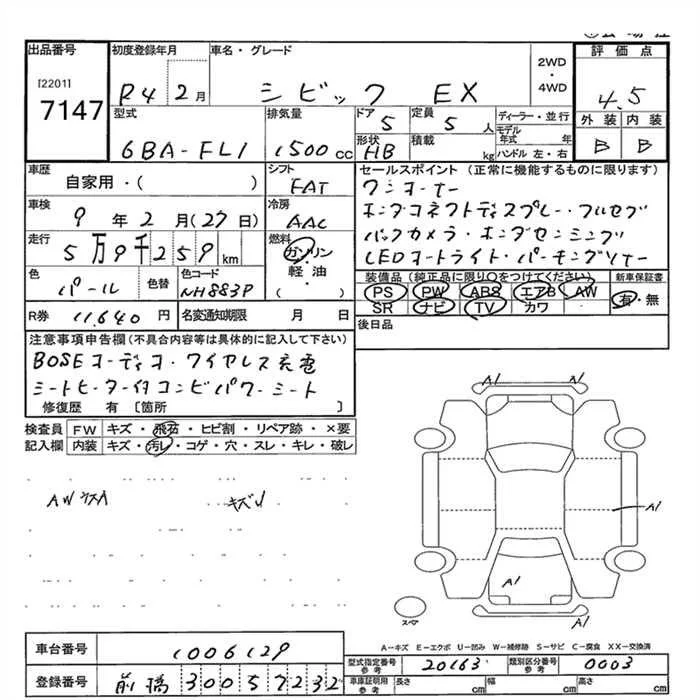 出品番号 初度登録年月 車名・グレード 2WD・4WD 評価点
[2201]
7147 R4 2月 シビック EX 4.5
型式 排気量 ドア 定員 ディーラー・並行 外装 内装
6BA-FL1 1500cc 5 5人 モデル年式 年 B B
形状 積載 kg ハンドル 左・右
HB
車歴 シフト セールスポイント (正常に機能するものに限ります)
自家用・( ) FAT ワンオーナー
車検 冷房 ホンダコネクトディスプレー・フルセグ
9年2月(27日) AAC バックカメラ・ホンダセンシング
走行 燃料 LEDオートライト・パーキングソナー
5万9千259km ガソリン・軽油・( )
色 色替 色コード 装備品 (純正品に限り○をつけてください) 新車保証書
パール NH883P PS PW ABS エアB AW 有・無
SR ナビ TV カワ
R券 11,640円 名変通知期限 月 日 後日品
注意事項申告欄(不具合内容等は具体的に記入して下さい)
BOSEオーディオ・ワイヤレス充電
シートヒーター付コンビパワーシート
修復歴 有 [箇所 ]
検査員 FW キズ・飛石・ヒビ割・リペア跡・×要
記入欄 内装 キズ・汚レ・コゲ・穴・スレ・キレ・破レ
A1 A1
AW ウスA キズU
A1
A1
スペア
A-キズ E-エクボ U-凹み W-補修跡 S-サビ C-腐食 XX-交換済
車台番号 1006129
型式指定番号 参考 20163 類別区分番号 参考 0003
登録番号 前橋 300 ち 7232
車庫証明用 参考 長さ cm 幅 cm 高さ cm